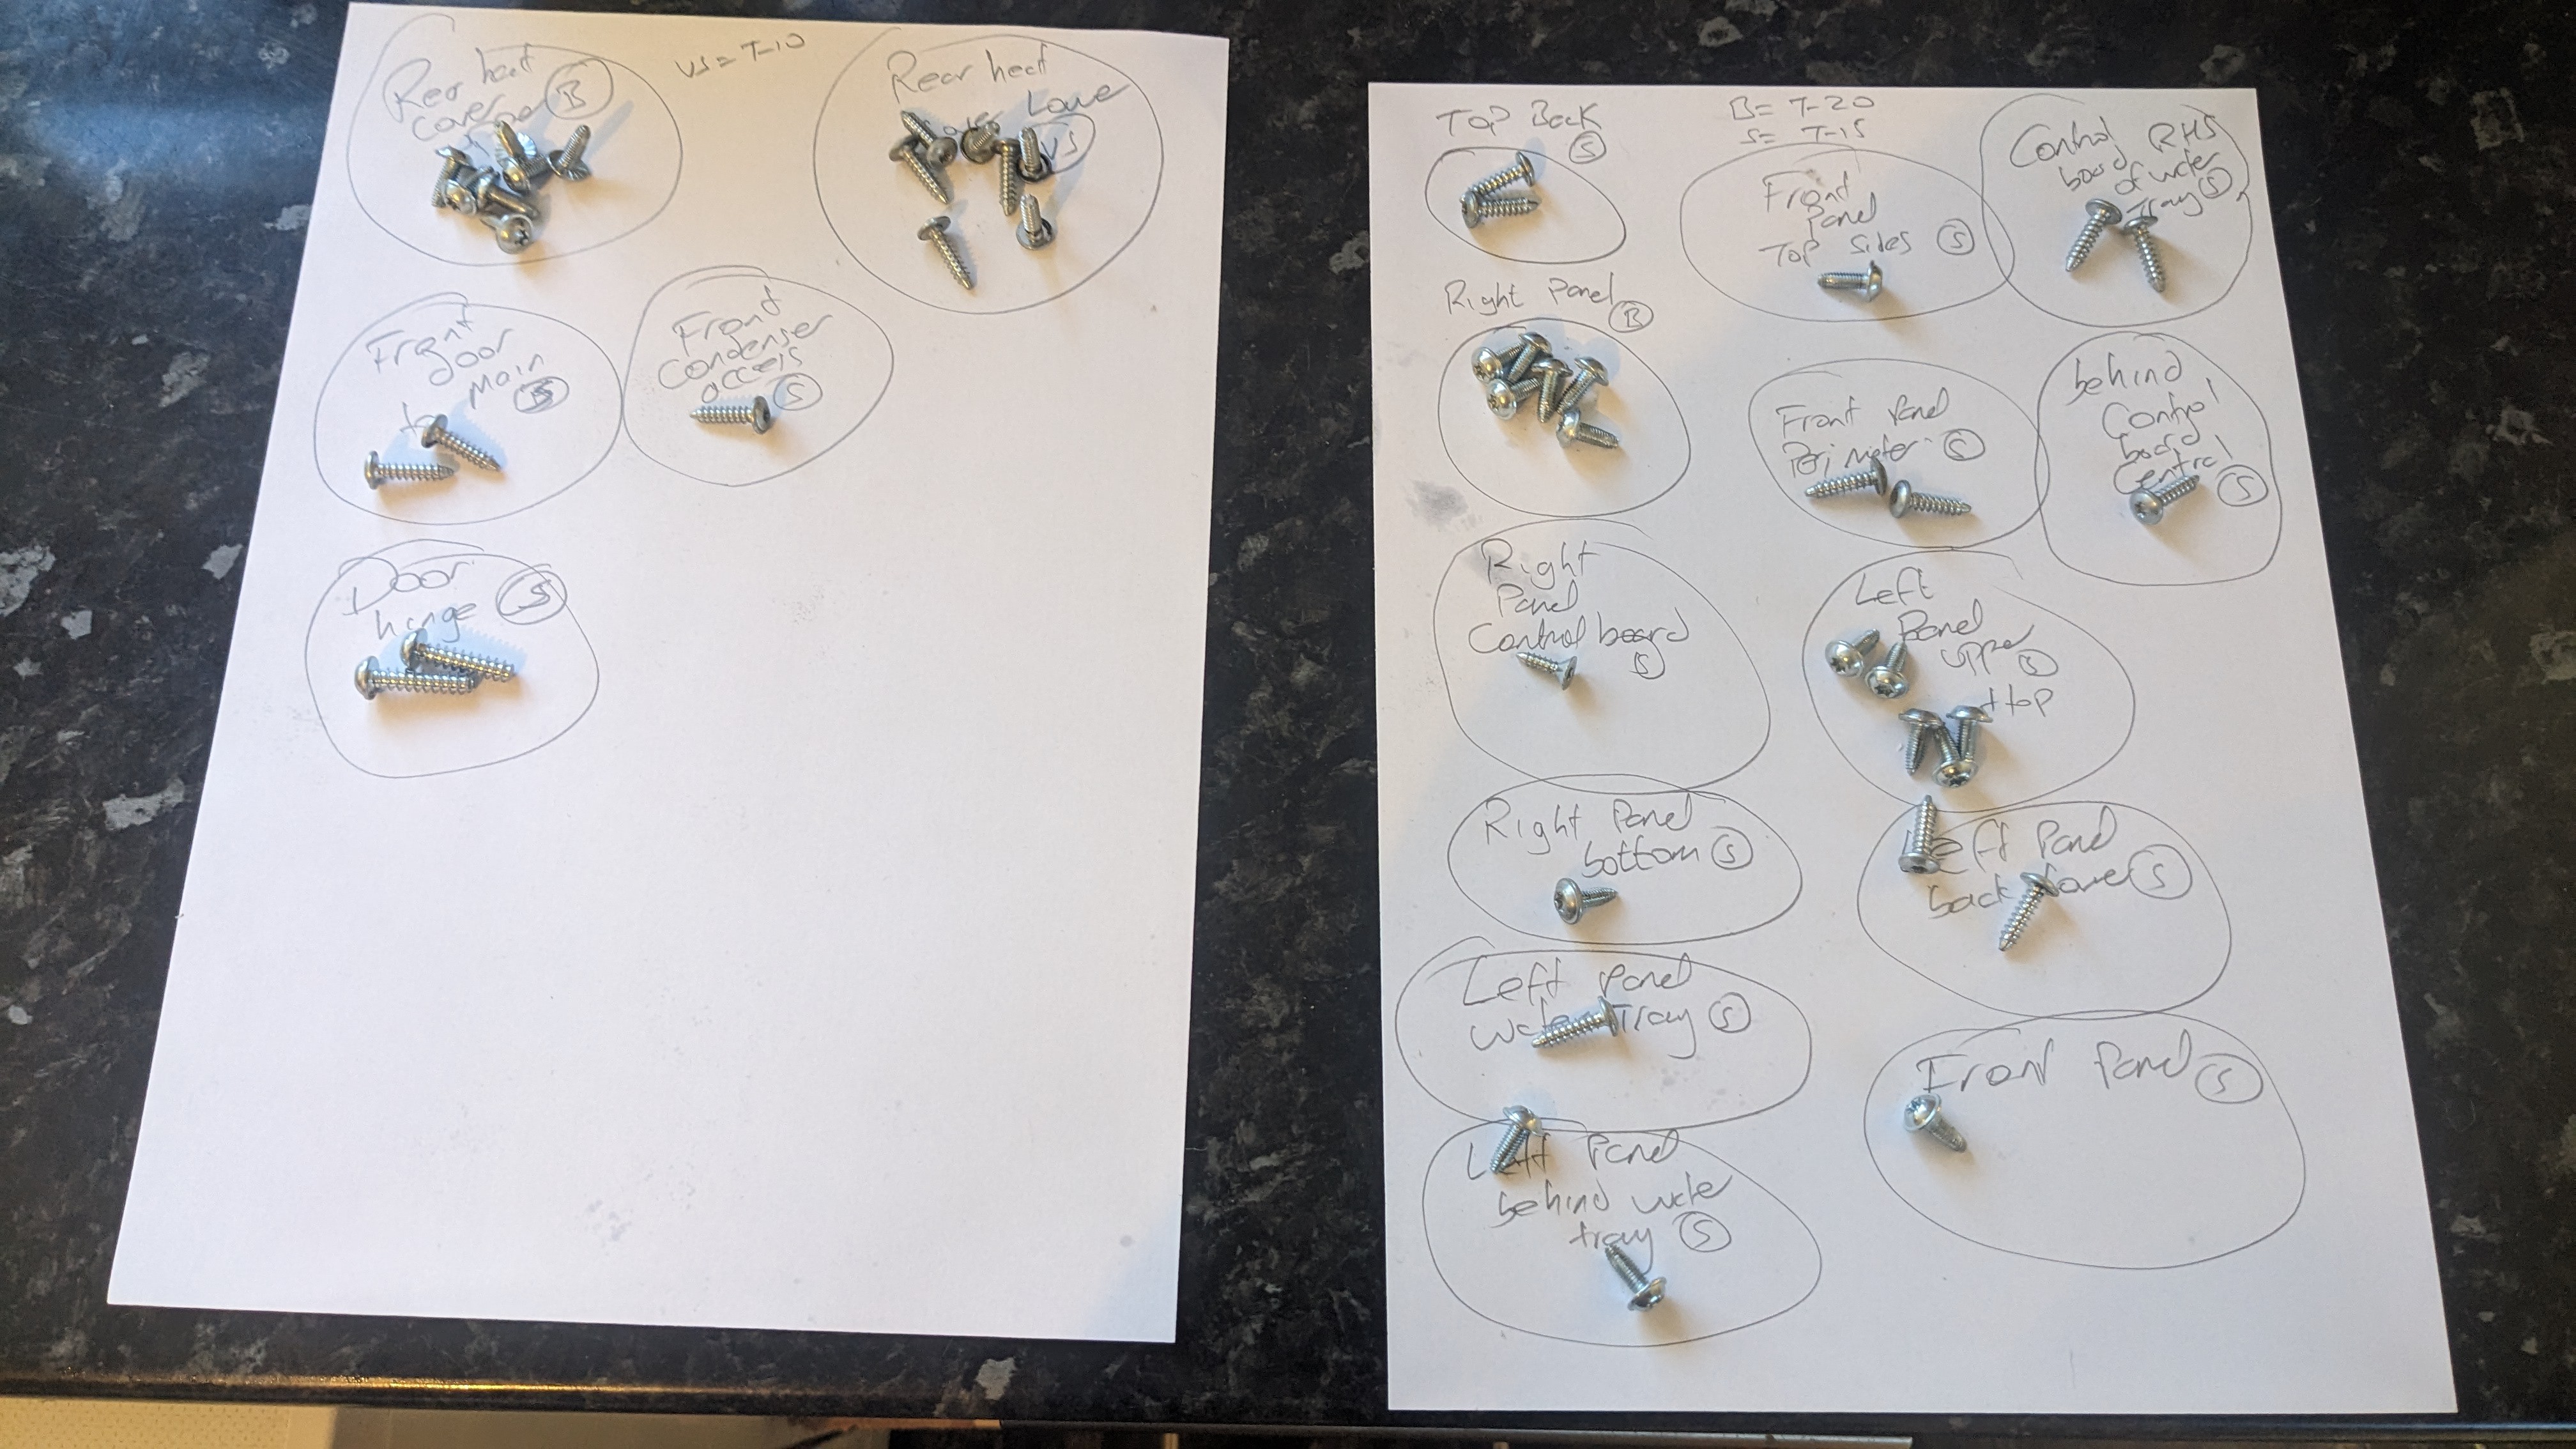 Rear heat
cover
B
VS = T-10
Rear heat
cover Lower
VS
Front
door
main
Front
condenser
access
S
Door
hinge
S
TOP Back
S
B = T-20
S = T-15
Front
Panel
TOP sides S
Control RHS
board of water
Tray S
Right Panel
B
Front Panel
Perimeter S
behind
Control
board
Central
S
Right
Panel
Control board
S
Left
Panel
upper S
+ top
Right Panel
bottom S
Left Panel
back lower S
Left Panel
water Tray S
Front Panel S
Left Panel
behind water
tray S